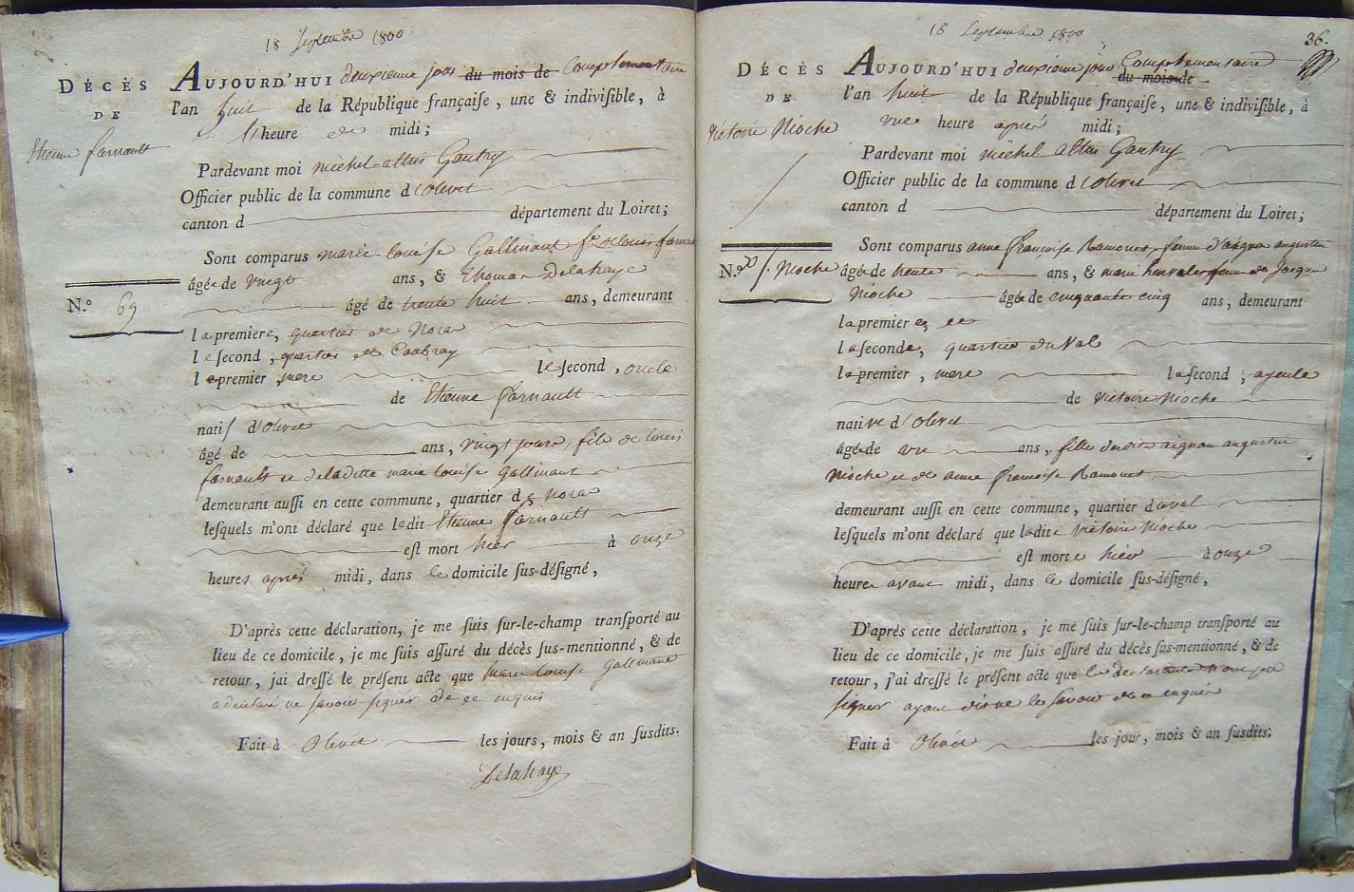 18 Septembre 1800
DÉCÈS
DE
Etienne farnault
N.o 69
AUJOURD'HUI deuxieme jour du mois de Complementaire
l'an huit de la République françaiſe, une & indiviſible, à
heure de midi;
Pardevant moi michel Gautry
Officier public de la commune d'olivet
canton d département du Loiret;
Sont comparus marie louiſe Gallinant
âgée de vingt ans, & Thomas Delahaye
âgé de trente huit ans, demeurant
la premiere, quartier de
le ſecond, quartier de
la premier, mere le ſecond, oncle
de Etienne farnault
natif d'olivet
âgé de ans, vingt jours, fils de louis
farnault et de laditte marie louiſe Gallinant
demeurant auſſi en cette commune, quartier de
leſquels m'ont déclaré que ledit Etienne farnault
eſt mort hier à onze
heures après midi, dans le domicile ſus-déſigné,
D'après cette déclaration, je me ſuis ſur-le-champ tranſporté au
lieu de ce domicile, je me ſuis aſſuré du décès ſus-mentionné, & de
retour, j'ai dreſſé le préſent acte que marie louiſe Gallinant
a déclaré ne ſavoir ſigner de ce enquis
Fait à Olivet les jours, mois & an ſuſdits.
Delahaye
18 Septembre 1800
36.
DÉCÈS
DE
Victoire Nioche
N.o Nioche
AUJOURD'HUI deuxieme jour Complementaire
du mois de
l'an huit de la République françaiſe, une & indiviſible, à
une heure après midi;
Pardevant moi michel Gautry
Officier public de la commune d'olivet
canton d département du Loiret;
Sont comparus anne françoiſe Ramonet femme d'aignan auguſtin
âgée de trente ans, & marie femme de Jacques
Nioche âgée de cinquante cinq ans, demeurant
la premiere, et
la ſeconde, quartier du Val
la premier, mere la ſecond, ayeule
de victoire Nioche
native d'olivet
âgée de un ans, fille dudit aignan auguſtin
Nioche et de anne françoiſe Ramonet
demeurant auſſi en cette commune, quartier du val
leſquels m'ont déclaré que ladite victoire Nioche
eſt morte hier à onze
heures avant midi, dans le domicile ſus-déſigné,
D'après cette déclaration, je me ſuis ſur-le-champ tranſporté au
lieu de ce domicile, je me ſuis aſſuré du décès ſus-mentionné, & de
retour, j'ai dreſſé le préſent acte que les declarantes n'ont pu
ſigner ayant dit ne le ſavoir de ce enquis
Fait à Olivet les jour, mois & an ſuſdits.